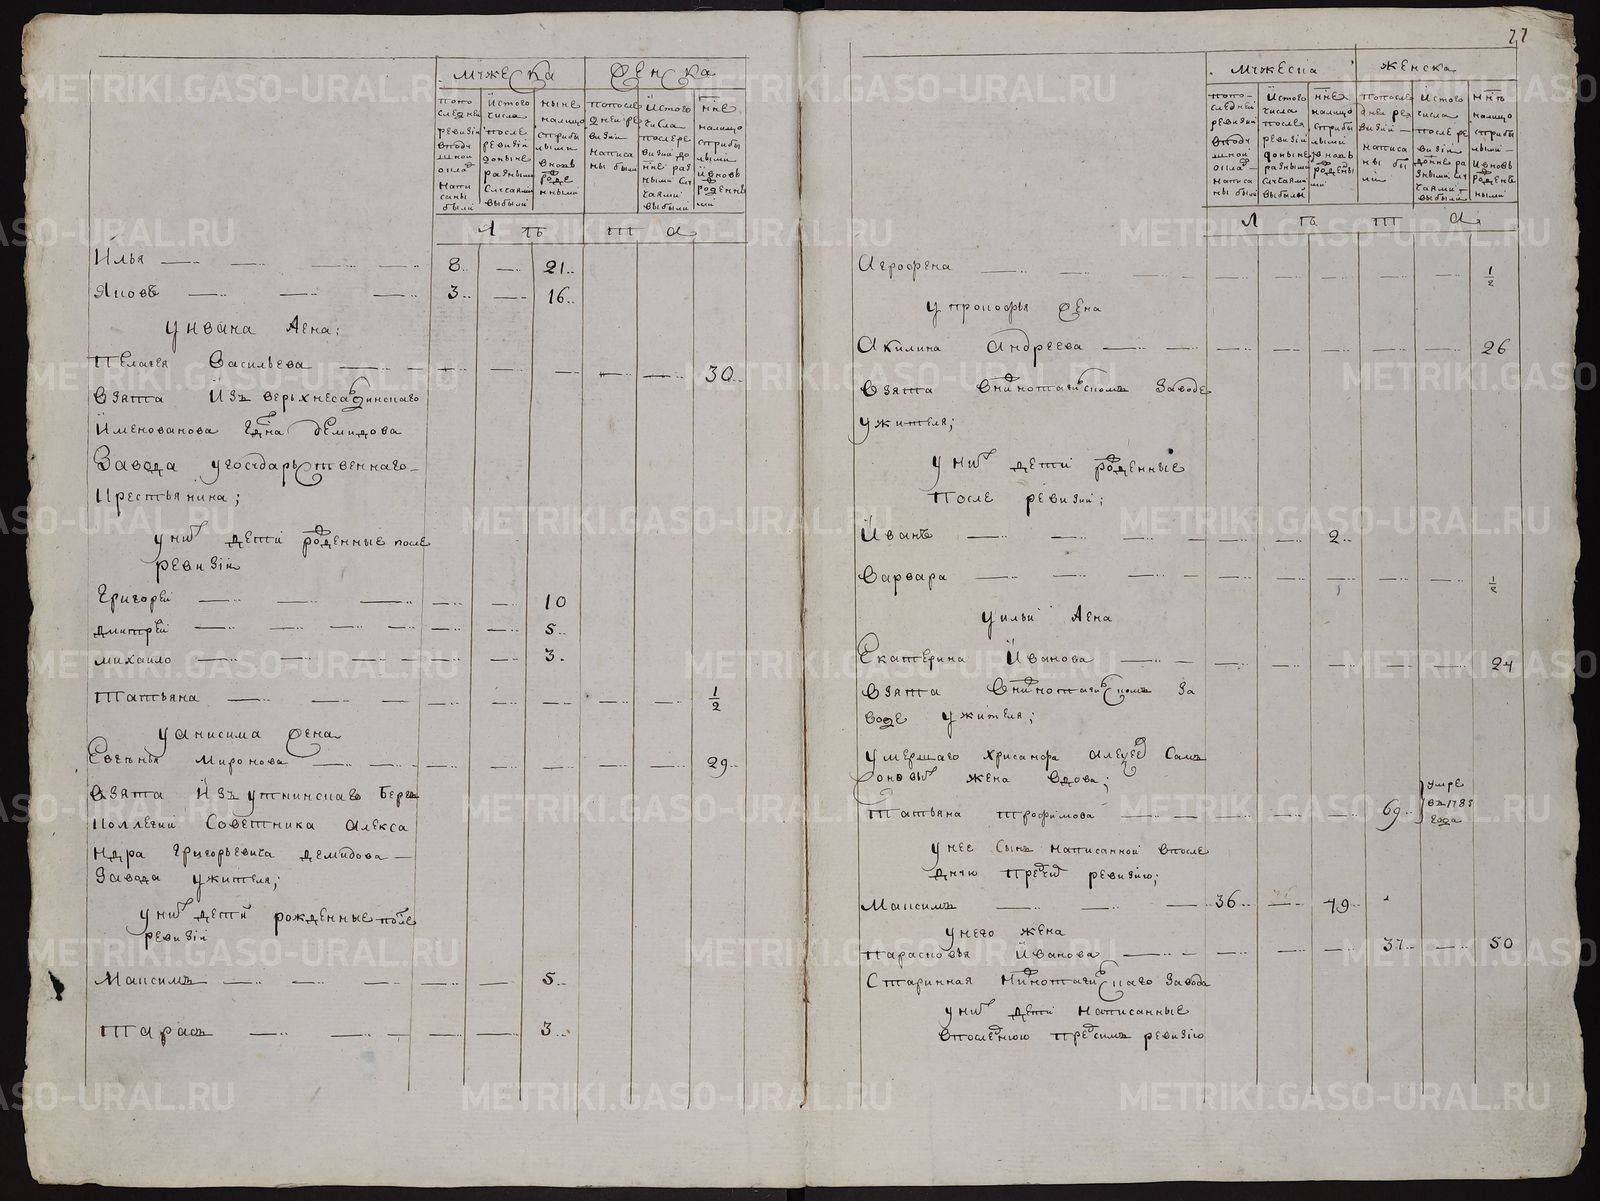 мꙋжеска женска
по по следней ревизіи в подꙋшной оклад написаны были
Ис того числа после ревизіи доныне разными слꙋчаями выбыли
ныне налицо с прибылыми вновь рожденными
по последней ревизіи написаны были
Ис того числа после ревизіи до нне разными слꙋчаями выбыли
нне налицо с прибылыми и вновь рожденными
л ѣ т а
Илья 8 21
Яковъ 3 16
У ивана жена:
Пелагея Васильева 30
взята Изъ верхнесалдинскаго
Именованова Гдна демидова
Завода У государственнаго
крестьянина;
У них дети рожденные после
ревизіи
Григорей 10
дмитрей 5
михаило 3
Татьяна 1/2
У анисима жена
Евгѣнья Миронова 29
взята Изъ уткинскаго Берг
коллегии Советника алекса
ндра Григорьевича демидова
Завода Ужителя;
У них дети рожденные после
ревизіи
Максимъ 5
Тарасъ 3
27
мꙋжеска женска
по последней ревизии в подꙋшной оклад написаны были
Ис того числа после ревизіи доныне разными слꙋчаями выбылы
нне налицо с прибылыми вновь рожденными
по последней ревизии написаны были
Ис того числа после ревизіи до нне разными слꙋчаями выбыли
ннѣ налицо с прибылыми и вновь рожденными
л ѣ т а
Агрофена 1/2
У прокофья жена
Акилина Андреева 26
взята в нижнотагилскомъ заводе
Ужителя;
У них дети рожденные
после ревизии;
Иванъ 2
Варвара 1/2
Уильи жена
Екатерина Иванова 24
взята в нижнотагилскомъ за
воде Ужителя;
умершаго хрисанфа алексеева Сам
жена вдова;
Татьяна трофимова 69 умре
въ 1785
года
У нее сынъ написанной в после
днюю пред сим ревизию;
Максимъ 36 49
У него жена
Парасковья Иванова 37 50
Старинная нижнотагилскаго завода
У них дети написанные
в последнюю пред симъ ревизию
METRIKI.GASO-URAL.RU